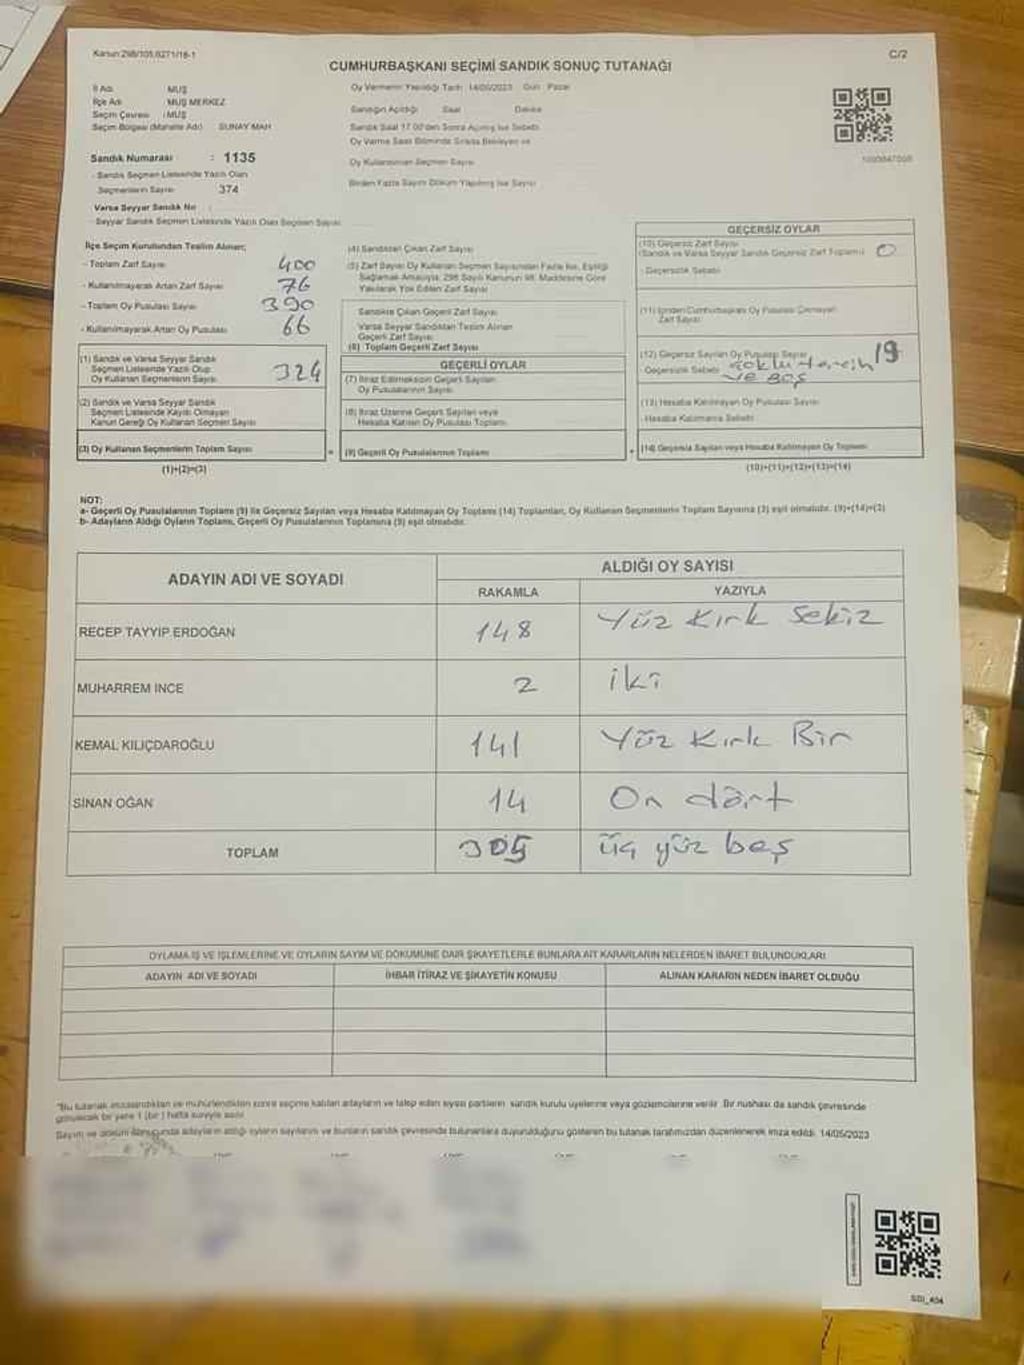 Kanun:298/105,6271/18-1
C/2
CUMHURBAŞKANI SEÇİMİ SANDIK SONUÇ TUTANAĞI
İl Adı : MUŞ
İlçe Adı : MUŞ MERKEZ
Seçim Çevresi : MUŞ
Seçim Bölgesi (Mahalle Adı) : SUNAY MAH
Sandık Numarası : 1135
- Sandık Seçmen Listesinde Yazılı Olan
Seçmenlerin Sayısı 374
Varsa Seyyar Sandık No :
- Seyyar Sandık Seçmen Listesinde Yazılı Olan Seçmen Sayısı
Oy Vermenin Yapıldığı Tarih 14/05/2023 Gün Pazar
Sandığın Açıldığı Saat Dakika
Sandık Saat 17.00'den Sonra Açılmış İse Sebebi
Oy Verme Saati Bitiminde Sırada Bekleyen ve
Oy Kullandırılan Seçmen Sayısı
Birden Fazla Sayım Döküm Yapılmış İse Sayısı
İlçe Seçim Kurulundan Teslim Alınan;
- Toplam Zarf Sayısı 400
- Kullanılmayarak Artan Zarf Sayısı 76
- Toplam Oy Pusulası Sayısı 390
- Kullanılmayarak Artan Oy Pusulası 66
(1) Sandık ve Varsa Seyyar Sandık
Seçmen Listesinde Yazılı Olup
Oy Kullanan Seçmenlerin Sayısı 324
(2) Sandık ve Varsa Seyyar Sandık
Seçmen Listesinde Kayıtlı Olmayan
Kanun Gereği Oy Kullanan Seçmen Sayısı
(3) Oy Kullanan Seçmenlerin Toplam Sayısı
(1)+(2)=(3)
(4) Sandıktan Çıkan Zarf Sayısı
(5) Zarf Sayısı Oy Kullanan Seçmen Sayısından Fazla İse, Eşitliği
Sağlamak Amacıyla, 298 Sayılı Kanunun 98. Maddesine Göre
Yakılarak Yok Edilen Zarf Sayısı
Sandıkta Çıkan Geçerli Zarf Sayısı
Varsa Seyyar Sandıktan Teslim Alınan
Geçerli Zarf Sayısı
(6) Toplam Geçerli Zarf Sayısı
GEÇERLİ OYLAR
(7) İtiraz Edilmeksizin Geçerli Sayılan
Oy Pusulalarının Sayısı
(8) İtiraz Üzerine Geçerli Sayılan veya
Hesaba Katılan Oy Pusulası Toplamı
(9) Geçerli Oy Pusulalarının Toplamı
GEÇERSİZ OYLAR
(10) Geçersiz Zarf Sayısı
(Sandık ve Varsa Seyyar Sandık Geçersiz Zarf Toplamı) 0
- Geçersizlik Sebebi
(11) İçinden Cumhurbaşkanı Oy Pusulası Çıkmayan
Zarf Sayısı
(12) Geçersiz Sayılan Oy Pusulası Sayısı 19
Geçersizlik Sebebi çoklu tercih
ve boş
(13) Hesaba Katılmayan Oy Pusulası Sayısı
- Hesaba Katılmama Sebebi
(14) Geçersiz Sayılan veya Hesaba Katılmayan Oy Toplamı
(10)+(11)+(12)+(13)=(14)
NOT:
a- Geçerli Oy Pusulalarının Toplamı (9) ile Geçersiz Sayılan veya Hesaba Katılmayan Oy Toplamı (14) Toplamları, Oy Kullanan Seçmenlerin Toplam Sayısına (3) eşit olmalıdır. (9)+(14)=(3)
b- Adayların Aldığı Oyların Toplamı, Geçerli Oy Pusulalarının Toplamına (9) eşit olmalıdır.
ADAYIN ADI VE SOYADI
ALDIĞI OY SAYISI
RAKAMLA YAZIYLA
RECEP TAYYİP ERDOĞAN 148 Yüz Kırk Sekiz
MUHARREM İNCE 2 iki
KEMAL KILIÇDAROĞLU 141 Yüz Kırk Bir
SİNAN OĞAN 14 On dört
TOPLAM 305 üç yüz beş
OYLAMA İŞ VE İŞLEMLERİNE VE OYLARIN SAYIM VE DÖKÜMÜNE DAİR ŞİKAYETLERLE BUNLARA AİT KARARLARIN NELERDEN İBARET BULUNDUKLARI
ADAYIN ADI VE SOYADI İHBAR İTİRAZ VE ŞİKAYETİN KONUSU ALINAN KARARIN NEDEN İBARET OLDUĞU
"Bu tutanak imzalandıktan ve mühürlendikten sonra seçime katılan adayların ve talep eden siyasi partilerin sandık kurulu üyelerine veya gözlemcilerine verilir. Bir nüshası da sandık çevresinde
görülecek bir yere 1 (bir) hafta süreyle asılır.
Sayım ve döküm sonucunda adayların aldığı oyların sayılarını ve bunların sandık çevresinde bulunanlara duyurulduğunu gösteren bu tutanak tarafımızdan düzenlenerek imza edildi. 14/05/2023